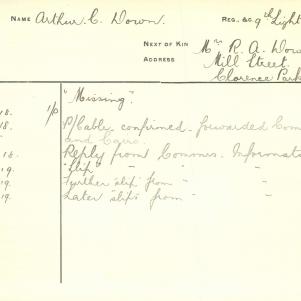 NAME Arthur. C. Down. REG. &C. 9th Light
NEXT OF KIN Mr R. A. Dow
ADDRESS Mill Street.
Clarence Park
18. "Missing".
18. P/Cable confirmed. forwarded Com
and
18. Reply from Commrs. Informat
19. "slip" " " "
19. Further "slip" from " "
19. Later "slips" from " "